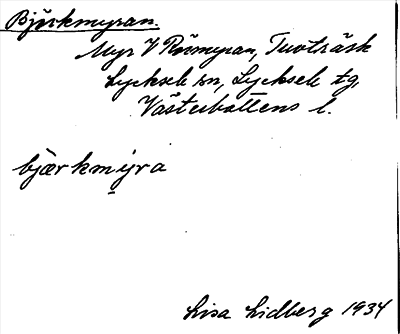 Björkmyran.
Myr V Rönnmyran, Tuvträsk
Lycksele sn, Lycksele tg,
Västerbottens l.
bjærkmyra
Lisa Lidberg 1934